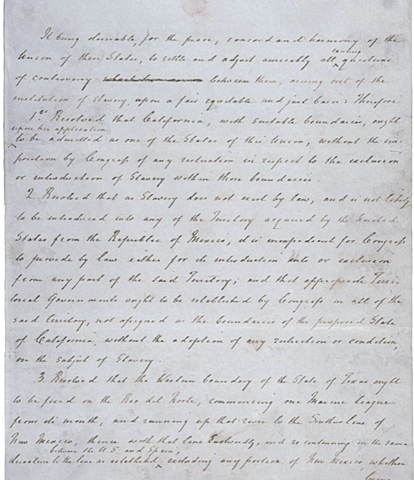 It being desirable, for the peace, concord and harmony of the
Union of these States, to settle and adjust amicably all existing questions
of controversy between them, arising out of the
institution of slavery, upon a fair equitable and just basis: Therefore
1st Resolved that California, with suitable boundaries, ought
upon her application
to be admitted as one of the States of this Union, without the im
position by Congress of any restriction in respect to the exclusion
or introduction of Slavery within those boundaries.
2. Resolved that as Slavery does not exist by law, and is not likely
to be introduced into any of the Territory acquired by the United
States from the Republic of Mexico, it is inexpedient for Congress
to provide by law either for its introduction into or exclusion
from any part of the said Territory; and that appropriate Terri-
torial Governments ought to be established by Congress in all of the
said territory, not assigned as the boundaries of the proposed State
of California, without the adoption of any restriction or condition
on the subject of Slavery.
3. Resolved that the Western boundary of the State of Texas ought
to be fixed on the Rio del Norte, commencing one Marine league
from its mouth, and running up that river to the Southern line of
New Mexico, thence with that line Eastwardly, and so continuing in the same
between the U.S. and Spain,
direction to the line as established, excluding any portion of New Mexico, whether